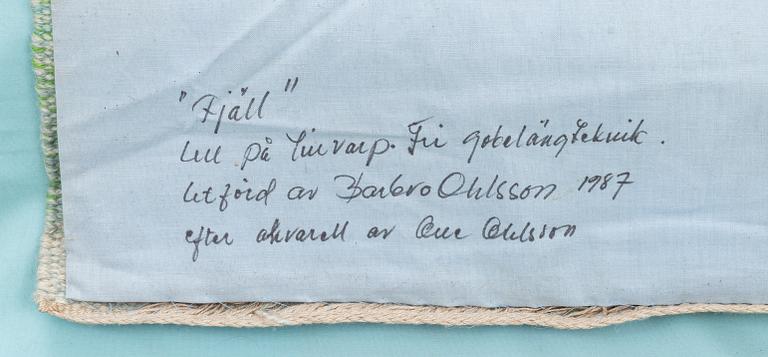 "Fjäll"
Ull på linvarp. Fri gobelängteknik.
Utförd av Barbro Ohlsson 1987
efter akvarell av Owe Ohlsson